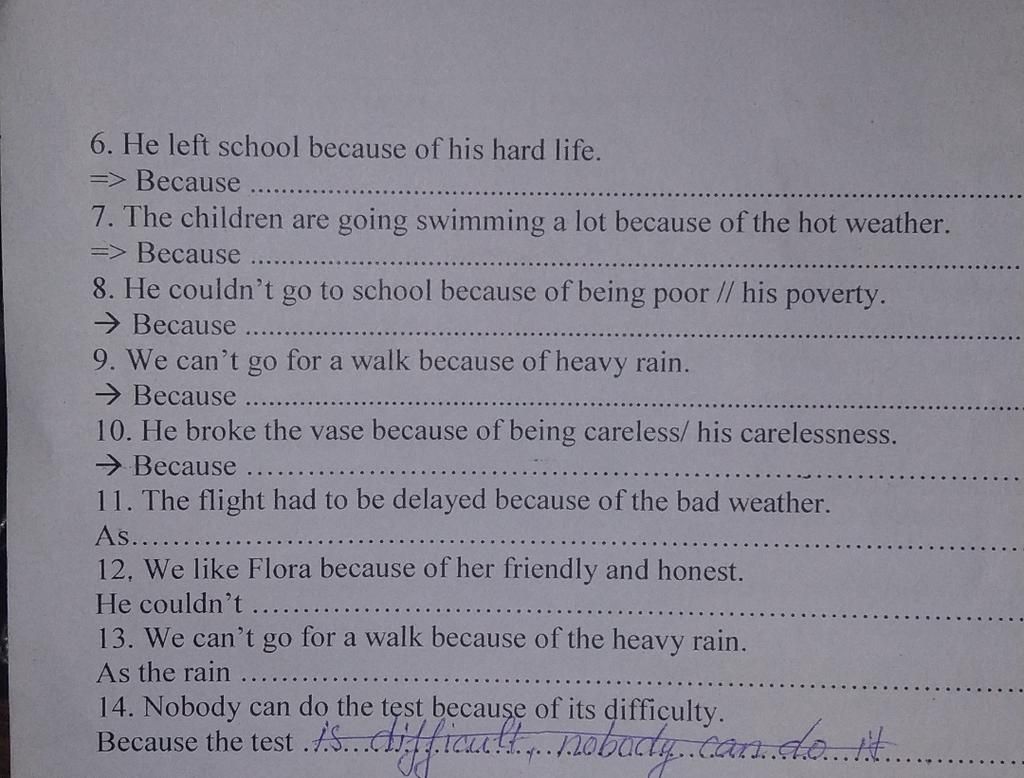 6. He left school because of his hard life.
=> Because ........................................................................
7. The children are going swimming a lot because of the hot weather.
=> Because ........................................................................
8. He couldn't go to school because of being poor // his poverty.
→ Because ........................................................................
9. We can't go for a walk because of heavy rain.
→ Because ........................................................................
10. He broke the vase because of being careless/ his carelessness.
→ Because ........................................................................
11. The flight had to be delayed because of the bad weather.
As........................................................................
12, We like Flora because of her friendly and honest.
He couldn't ........................................................................
13. We can't go for a walk because of the heavy rain.
As the rain ........................................................................
14. Nobody can do the test because of its difficulty.
Because the test .is...difficult,..nobody..can..do..it............